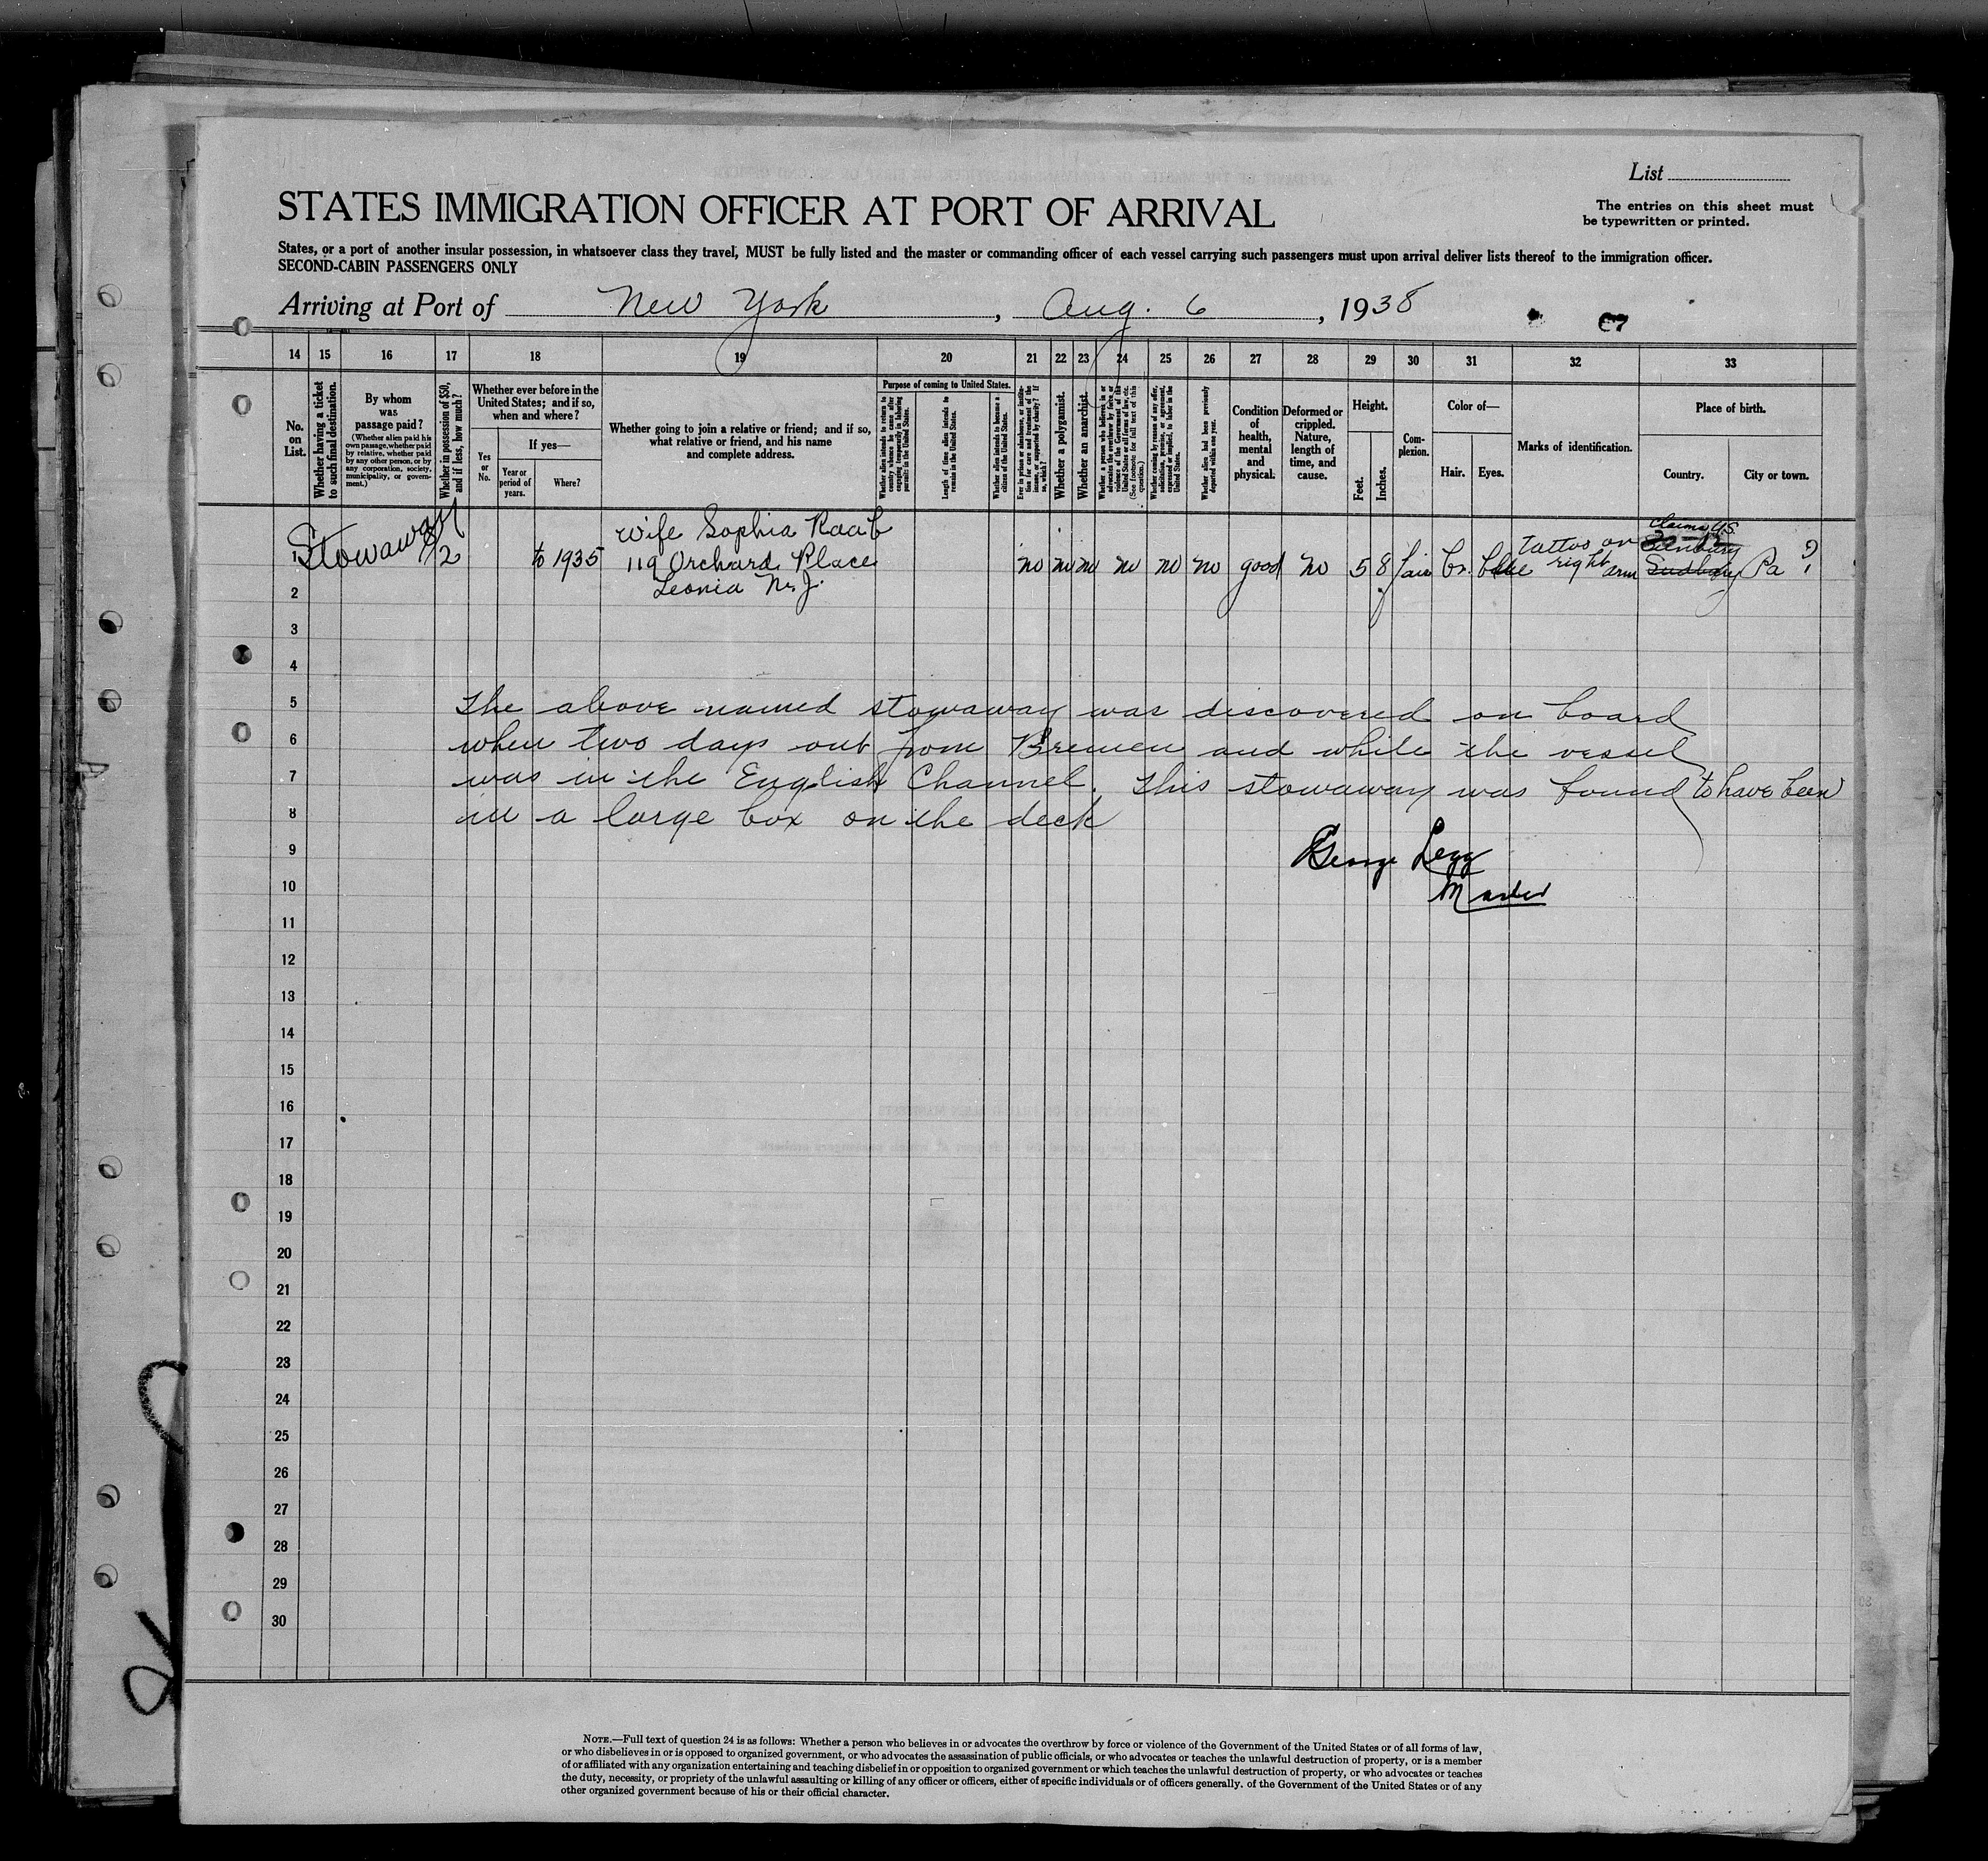 List
The entries on this sheet must
be typewritten or printed.
STATES IMMIGRATION OFFICER AT PORT OF ARRIVAL
States, or a port of another insular possession, in whatsoever class they travel, MUST be fully listed and the master or commanding officer of each vessel carrying such passengers must upon arrival deliver lists thereof to the immigration officer.
SECOND-CABIN PASSENGERS ONLY
Arriving at Port of New York, Aug. 6, 1938
14 15 16 17 18 19 20 21 22 23 24 25 26 27 28 29 30 31 32 33
No.
on
List.
Whether having a ticket
to such final destination.
By whom
was
passage paid?
(Whether alien paid his
own passage, whether paid
by relative, whether paid
by any other person, or by
any corporation, society,
municipality, or govern-
ment.)
Whether in possession of $50,
and if less, how much?
Whether ever before in the
United States; and if so,
when and where?
Yes
or
No.
If yes—
Year or
period of
years.
Where?
Whether going to join a relative or friend; and if so,
what relative or friend, and his name
and complete address.
Purpose of coming to United States.
Whether alien intends to return to
country whence he came after
engaging temporarily in laboring
pursuits in the United States.
Length of time alien intends to
remain in the United States.
Whether alien intends to become a
citizen of the United States.
Ever in prison or almshouse, or institu-
tion for care and treatment of the
insane, or supported by charity? If
so, which?
Whether a polygamist.
Whether an anarchist.
Whether a person who believes in or
advocates the overthrow by force or
violence of the Government of the
United States or all forms of law, etc.
(See footnote for full text of this
question.)
Whether coming by reason of any offer,
solicitation, promise, or agreement,
expressed or implied, to labor in the
United States.
Whether alien had been previously
deported within one year.
Condition
of
health,
mental
and
physical.
Deformed or
crippled.
Nature,
length of
time, and
cause.
Height.
Feet.
Inches.
Com-
plexion.
Color of—
Hair.
Eyes.
Marks of identification.
Place of birth.
Country.
City or town.
Stowaway
wife Sophia Raab
claims U.S.
1 1/2 to 1935 119 Orchard Place no no no no no no good no 5 8 fair br. blue tattoo on right arm Sudbury Pa ?
Leonia N.J.
2
3
4
5 The above named stowaway was discovered on board
6 when two days out from Bremen and while the vessel
7 was in the English Channel. This stowaway was found to have been
8 in a large box on the deck
9 George Legg
10 Master
11
12
13
14
15
16
17
18
19
20
21
22
23
24
25
26
27
28
29
30
NOTE.—Full text of question 24 is as follows: Whether a person who believes in or advocates the overthrow by force or violence of the Government of the United States or of all forms of law,
or who disbelieves in or is opposed to organized government, or who advocates the assassination of public officials, or who advocates or teaches the unlawful destruction of property, or is a member
of or affiliated with any organization entertaining and teaching disbelief in or opposition to organized government or which teaches the unlawful destruction of property, or who advocates or teaches
the duty, necessity, or propriety of the unlawful assaulting or killing of any officer or officers, either of specific individuals or of officers generally, of the Government of the United States or of any
other organized government because of his or their official character.